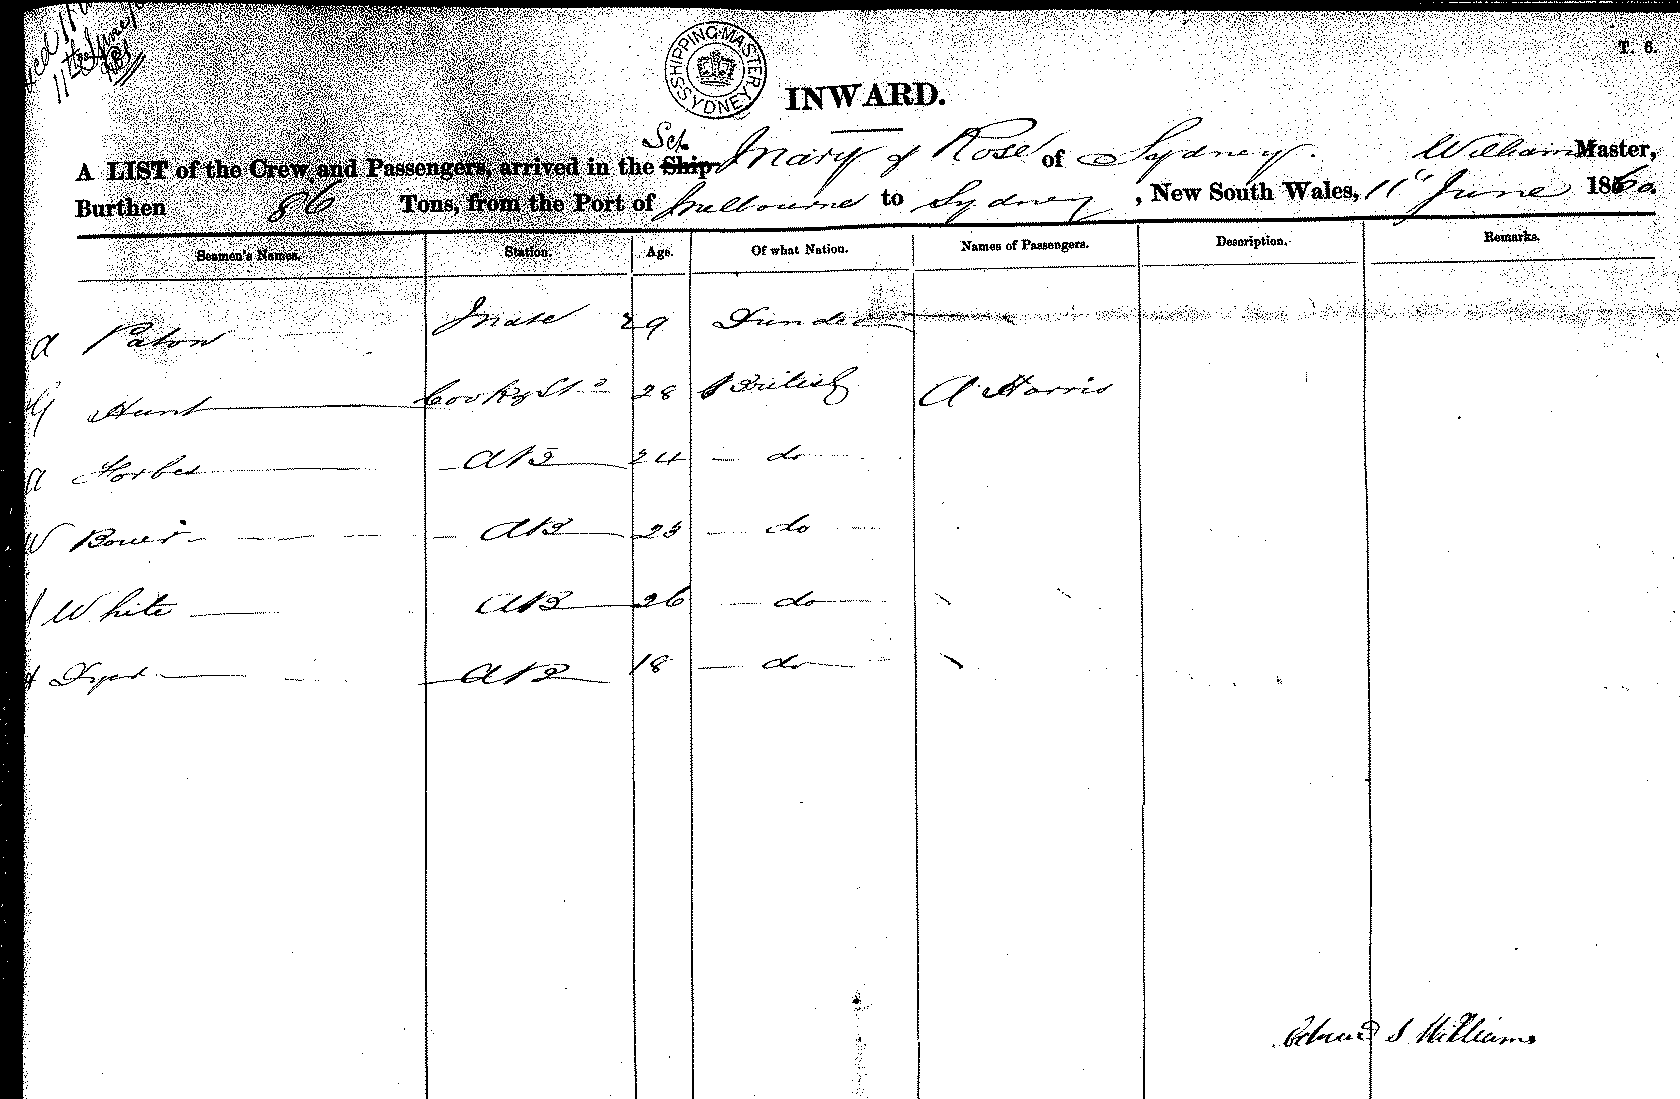 11th June
SHIPPING MASTER SYDNEY
T. 6.
INWARD.
Sch
A LIST of the Crew and Passengers, arrived in the Ship Mary & Rose of Sydney. Williams Master,
Burthen 86 Tons, from the Port of Melbourne to Sydney, New South Wales, 11th June 1860.
Seamen's Names. Station. Age. Of what Nation. Names of Passengers. Description. Remarks.
a Paton Mate 29 Dundee
Hunt Cook & Std 28 British A Harris
a Forbes AB 24 do
W Bower AB 23 do
White AB 26 do
Dyer AB 18 do
Edward S Williams